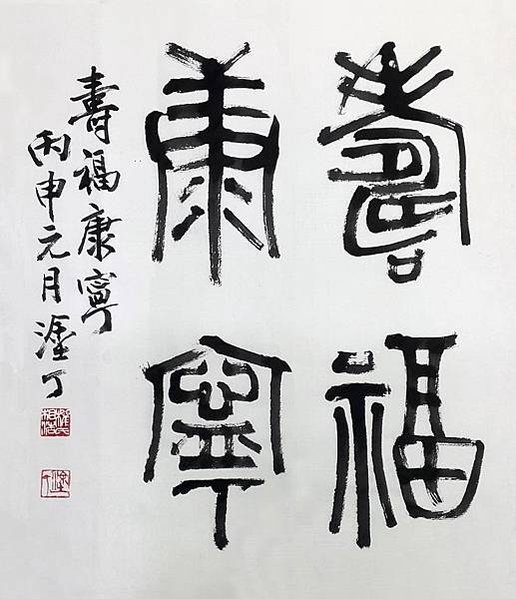 壽福
康寧
壽福康寧
丙申元月丁